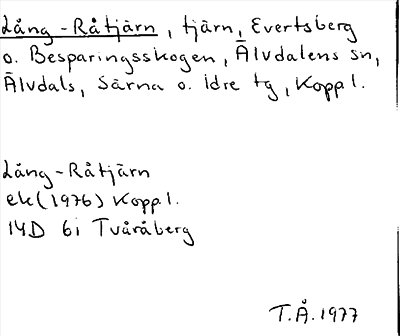 Lång-Råtjärn, tjärn, Evertsberg
o. Besparingsskogen, Älvdalens sn,
Älvdals, Särna o. Idre tg, Koppl.
Lång-Råtjärn
ek(1976) Koppl.
14D 6i Tvåråberg
T.Å.1977